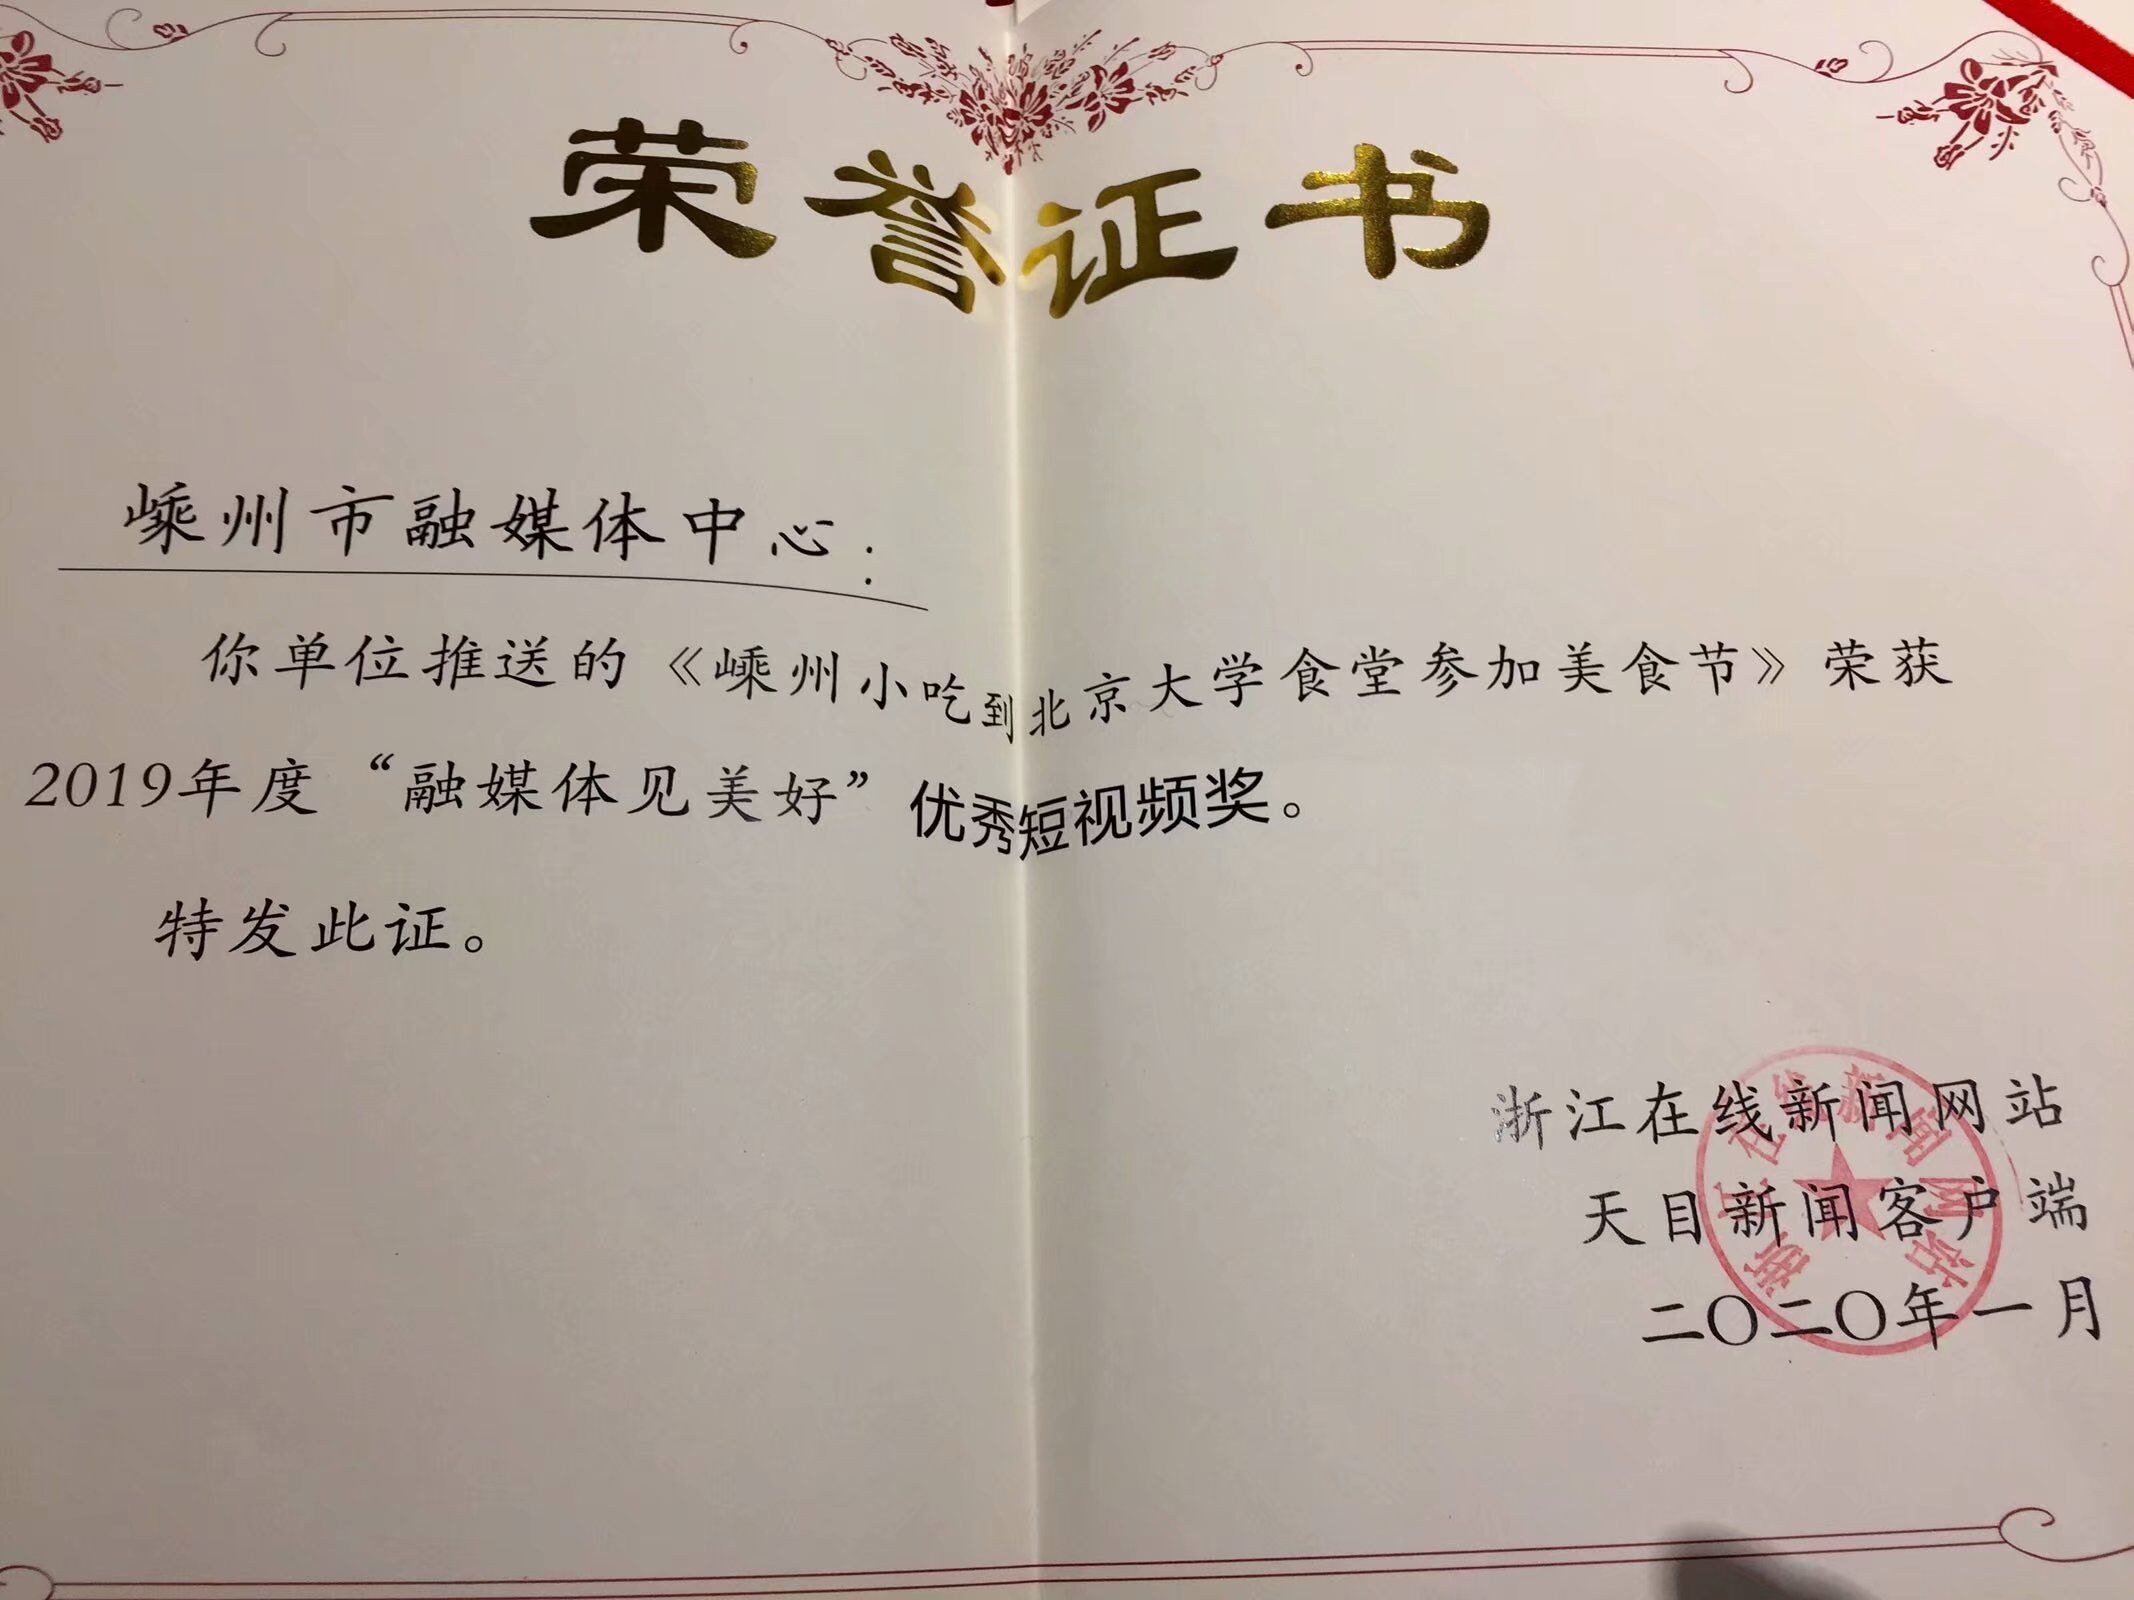 荣誉证书
嵊州市融媒体中心：
你单位推送的《嵊州小吃到北京大学食堂参加美食节》荣获
2019年度“融媒体见美好”优秀短视频奖。
特发此证。
浙江在线新闻网站
天目新闻客户端
二〇二〇年一月
浙江在线新闻网站